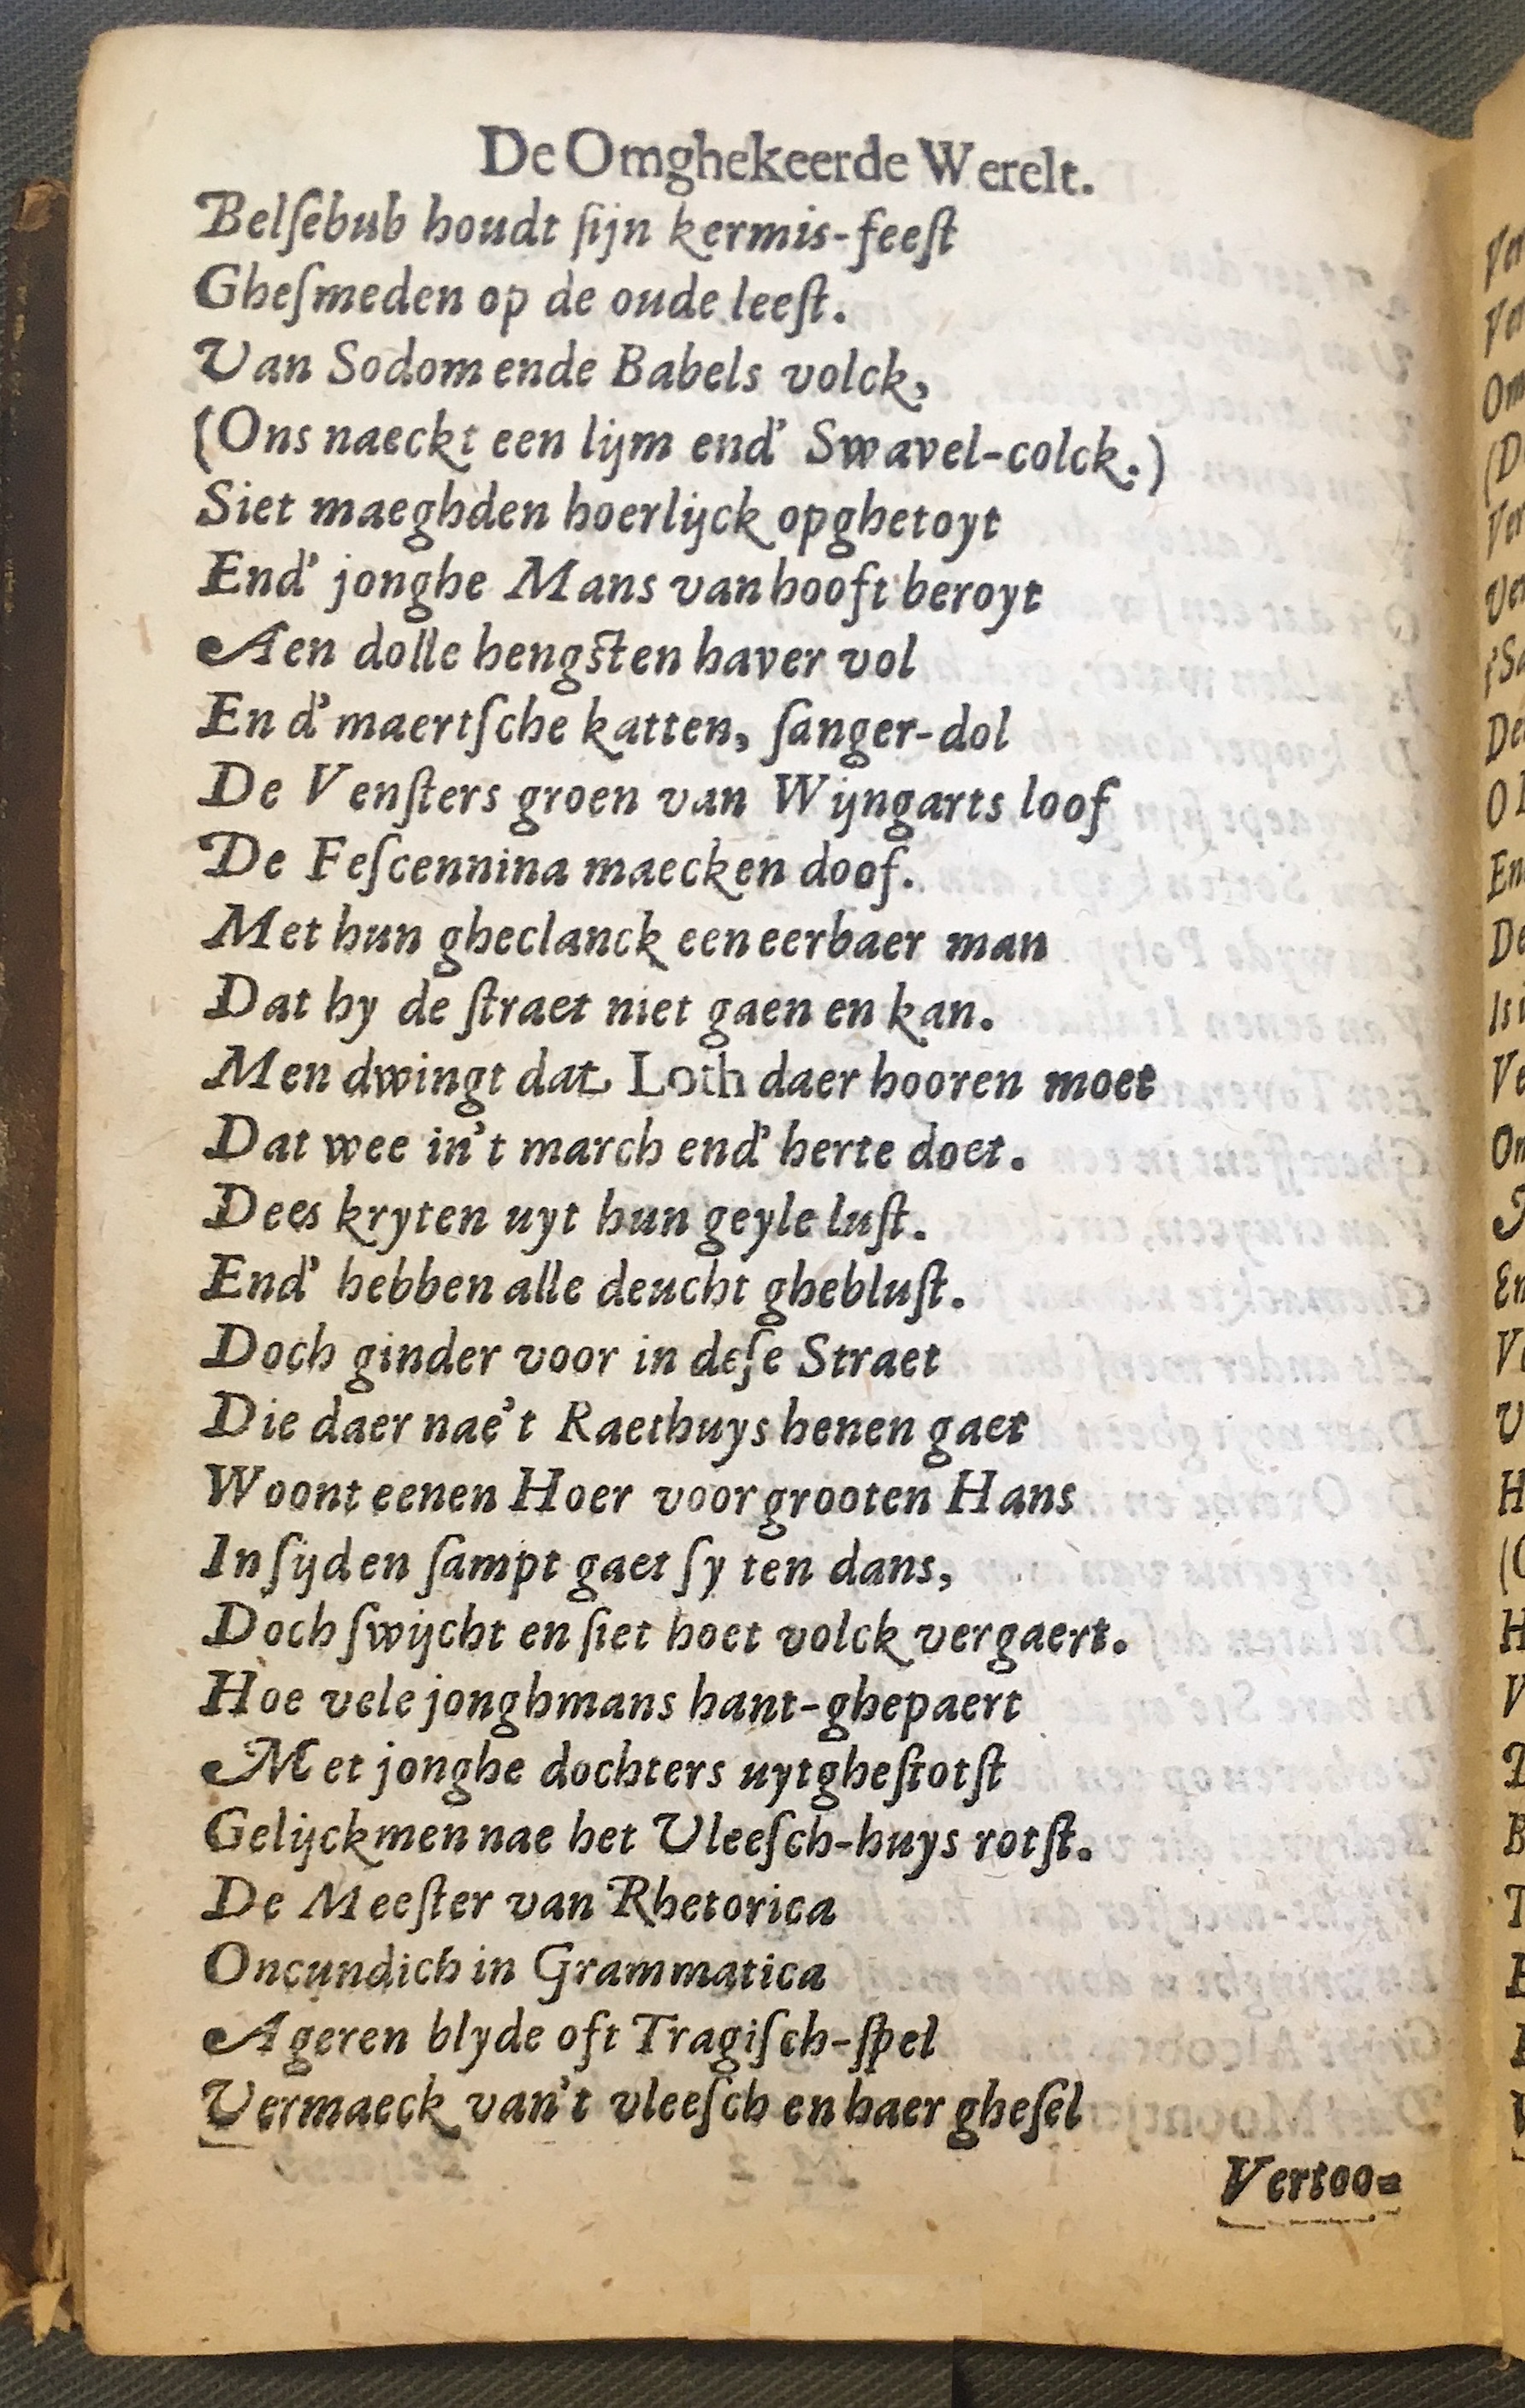 De Omghekeerde Werelt.
Belſebub houdt ſijn kermis-feeſt
Gheſmeden op de oude leeſt.
Van Sodom ende Babels volck,
(Ons naeckt een lijm end' Swavel-colck.)
Siet maeghden hoerlijck opghetoyt
End' jonghe Mans van hooft beroyt
Aen dolle hengſten haver vol
En d' maertſche katten, ſanger-dol
De Venſters groen van Wijngarts loof
De Feſcennina maecken doof.
Met hun gheclanck een eerbaer man
Dat hy de ſtraet niet gaen en kan.
Men dwingt dat Loth daer hooren moet
Dat wee in't march end' herte doet.
Dees kryten uyt hun geyle luſt.
End' hebben alle deucht ghebluſt.
Doch ginder voor in deſe Straet
Die daer nae't Raethuys henen gaet
Woont eenen Hoer voor grooten Hans
In ſijden ſampt gaet ſy ten dans,
Doch ſwijcht en ſiet hoet volck vergaert.
Hoe vele jonghmans hant-ghepaert
Met jonghe dochters uytgheſtotſt
Gelijckmen nae het Vleeſch-huys rotſt.
De Meeſter van Rhetorica
Oncundich in Grammatica
Ageren blyde oft Tragiſch-ſpel
Vermaeck van't vleeſch en haer gheſel
Vertoo-